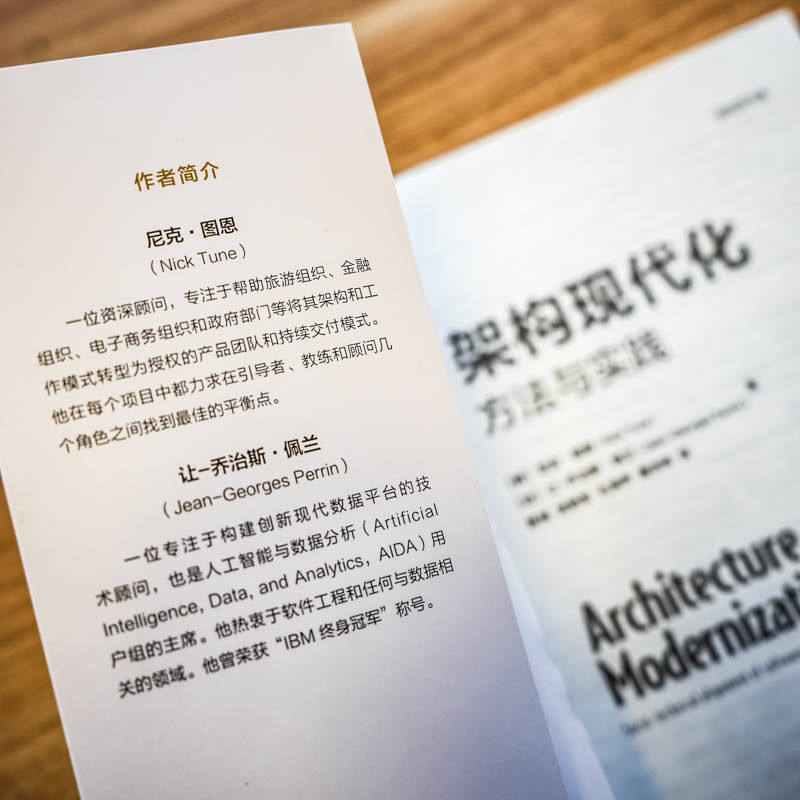 作者简介
尼克·图恩
（Nick Tune）
一位资深顾问，专注于帮助旅游组织、金融
组织、电子商务组织和政府部门等将其架构和工
作模式转型为授权的产品团队和持续交付模式。
他在每个项目中都力求在引导者、教练和顾问几
个角色之间找到最佳的平衡点。
让-乔治斯·佩兰
（Jean-Georges Perrin）
一位专注于构建创新现代数据平台的技
术顾问，也是人工智能与数据分析（Artificial
Intelligence, Data, and Analytics，AIDA）用
户组的主席。他热衷于软件工程和任何与数据相
关的领域。他曾荣获“IBM 终身冠军”称号。
架构现代化
方法与实践
Architecture
Modernizati